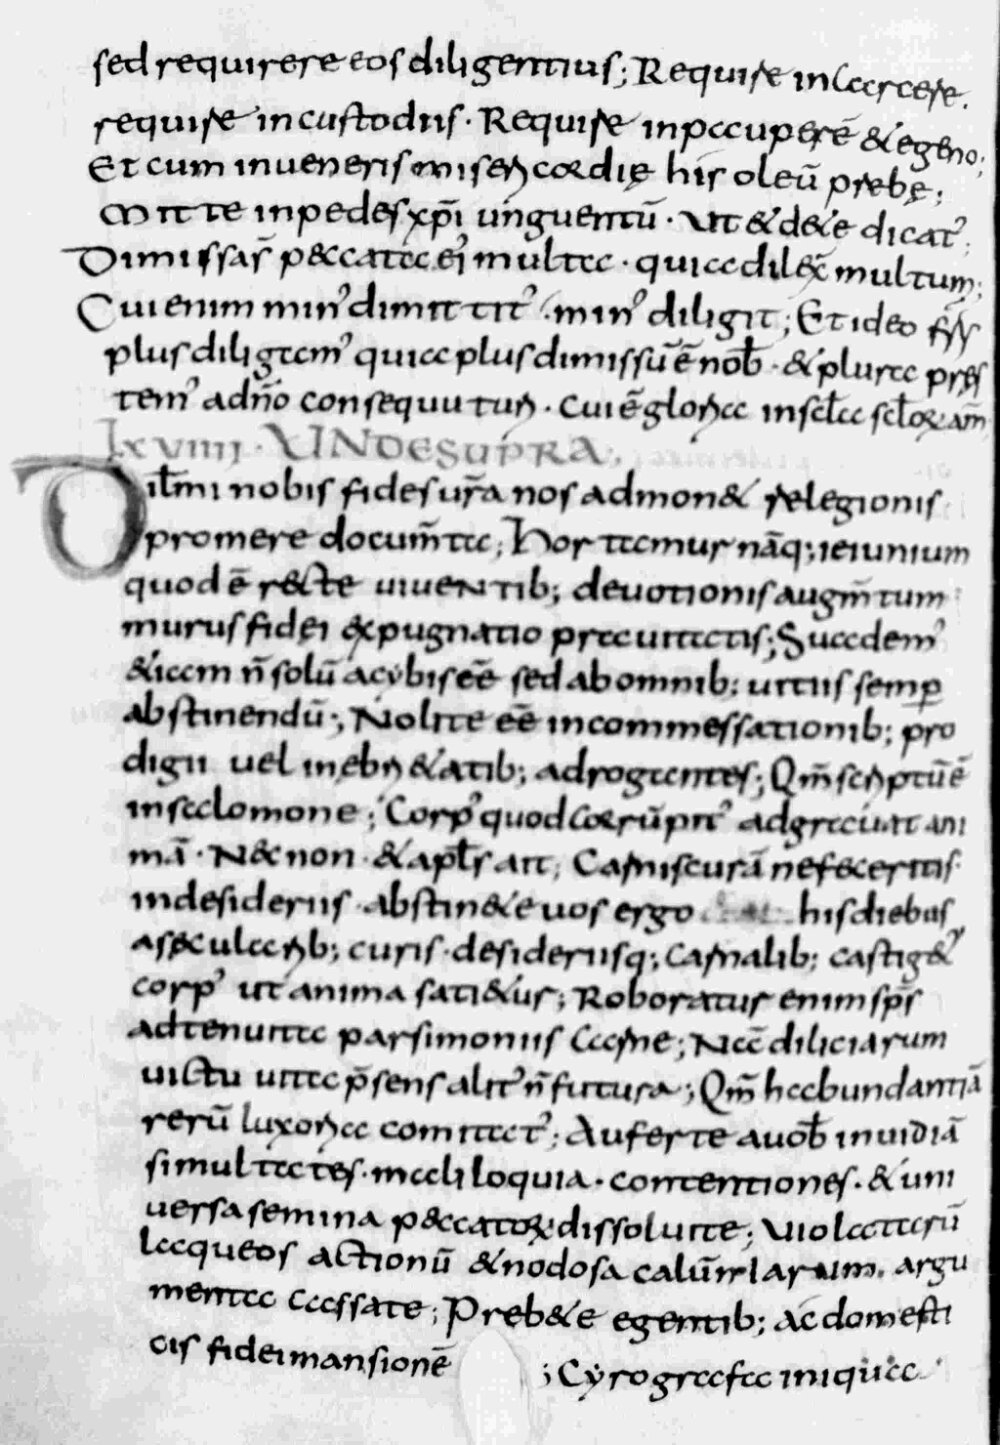 sed requirere eos diligentius; Require in carcere.
require in custodiis. Require in paupērē & egeno;
Et cum inueneris misericordię his oleū prębę;
Mitte in pedes xp̄i unguentū. Ut & de te dicat᾿;
Dimissas̄ peccata ei᾿ multa. quia dilex̄ multum;
Cui enim min᾿ dimittit᾿. min᾿ diligit; Et ideo ff̄
plus diligam᾿ quia plus dimissū ē nob̄. & plura pręs
tem᾿ ad dn̄o consequutur. cui ē gloria in scl̄a scl̄oꝝ am̄
Lxviiii. UNDE SUPRA;
Dil̄mi nobis fides ur̄a nos admon& relegionis
promere docum̄ta; Hortamur nāq; ieiunium
quod ē recte uiuentib; deuotionis augm̄tum
murus fidei expugnatio prauitatis; Suadem᾿
&iam n̄ solū a cybis eē sed ab omnib; uitiis semꝑ
abstinendū; Nolite eē in commessationib; pro
digii uel inębri&atib; adrogantes; Qm̄ scriptū ē
in salomone; Corp᾿ quod corrūpit᾿ adgrauat ani
mā. Nec non & apl̄s ait; Carnis curā ne feceritis
in desideriis. abstin&e uos ergo his diebus
a secularib; curis. desideriisq; carnalib; castig&᾿
corp᾿ ut anima sati&ur; Roboratur enim sp̄s
adtenuata parsimoniis carne; Nā diliciarum
uictu uita p̄sens alit᾿ n̄ futura; Qm̄ habundantiā
rerū luxoria comitat᾿; Auferte a uob̄ inuidiā
simultates. maliloquia. contentiones. & uni
uersa semina peccatoꝝ dissoluite; Violatarū
laqueos actionū & nodosa calūniarum. argu
menta cassate; Preb&e egentib; ac domesti
cis fidei mansionē ; Cyrografa iniqua